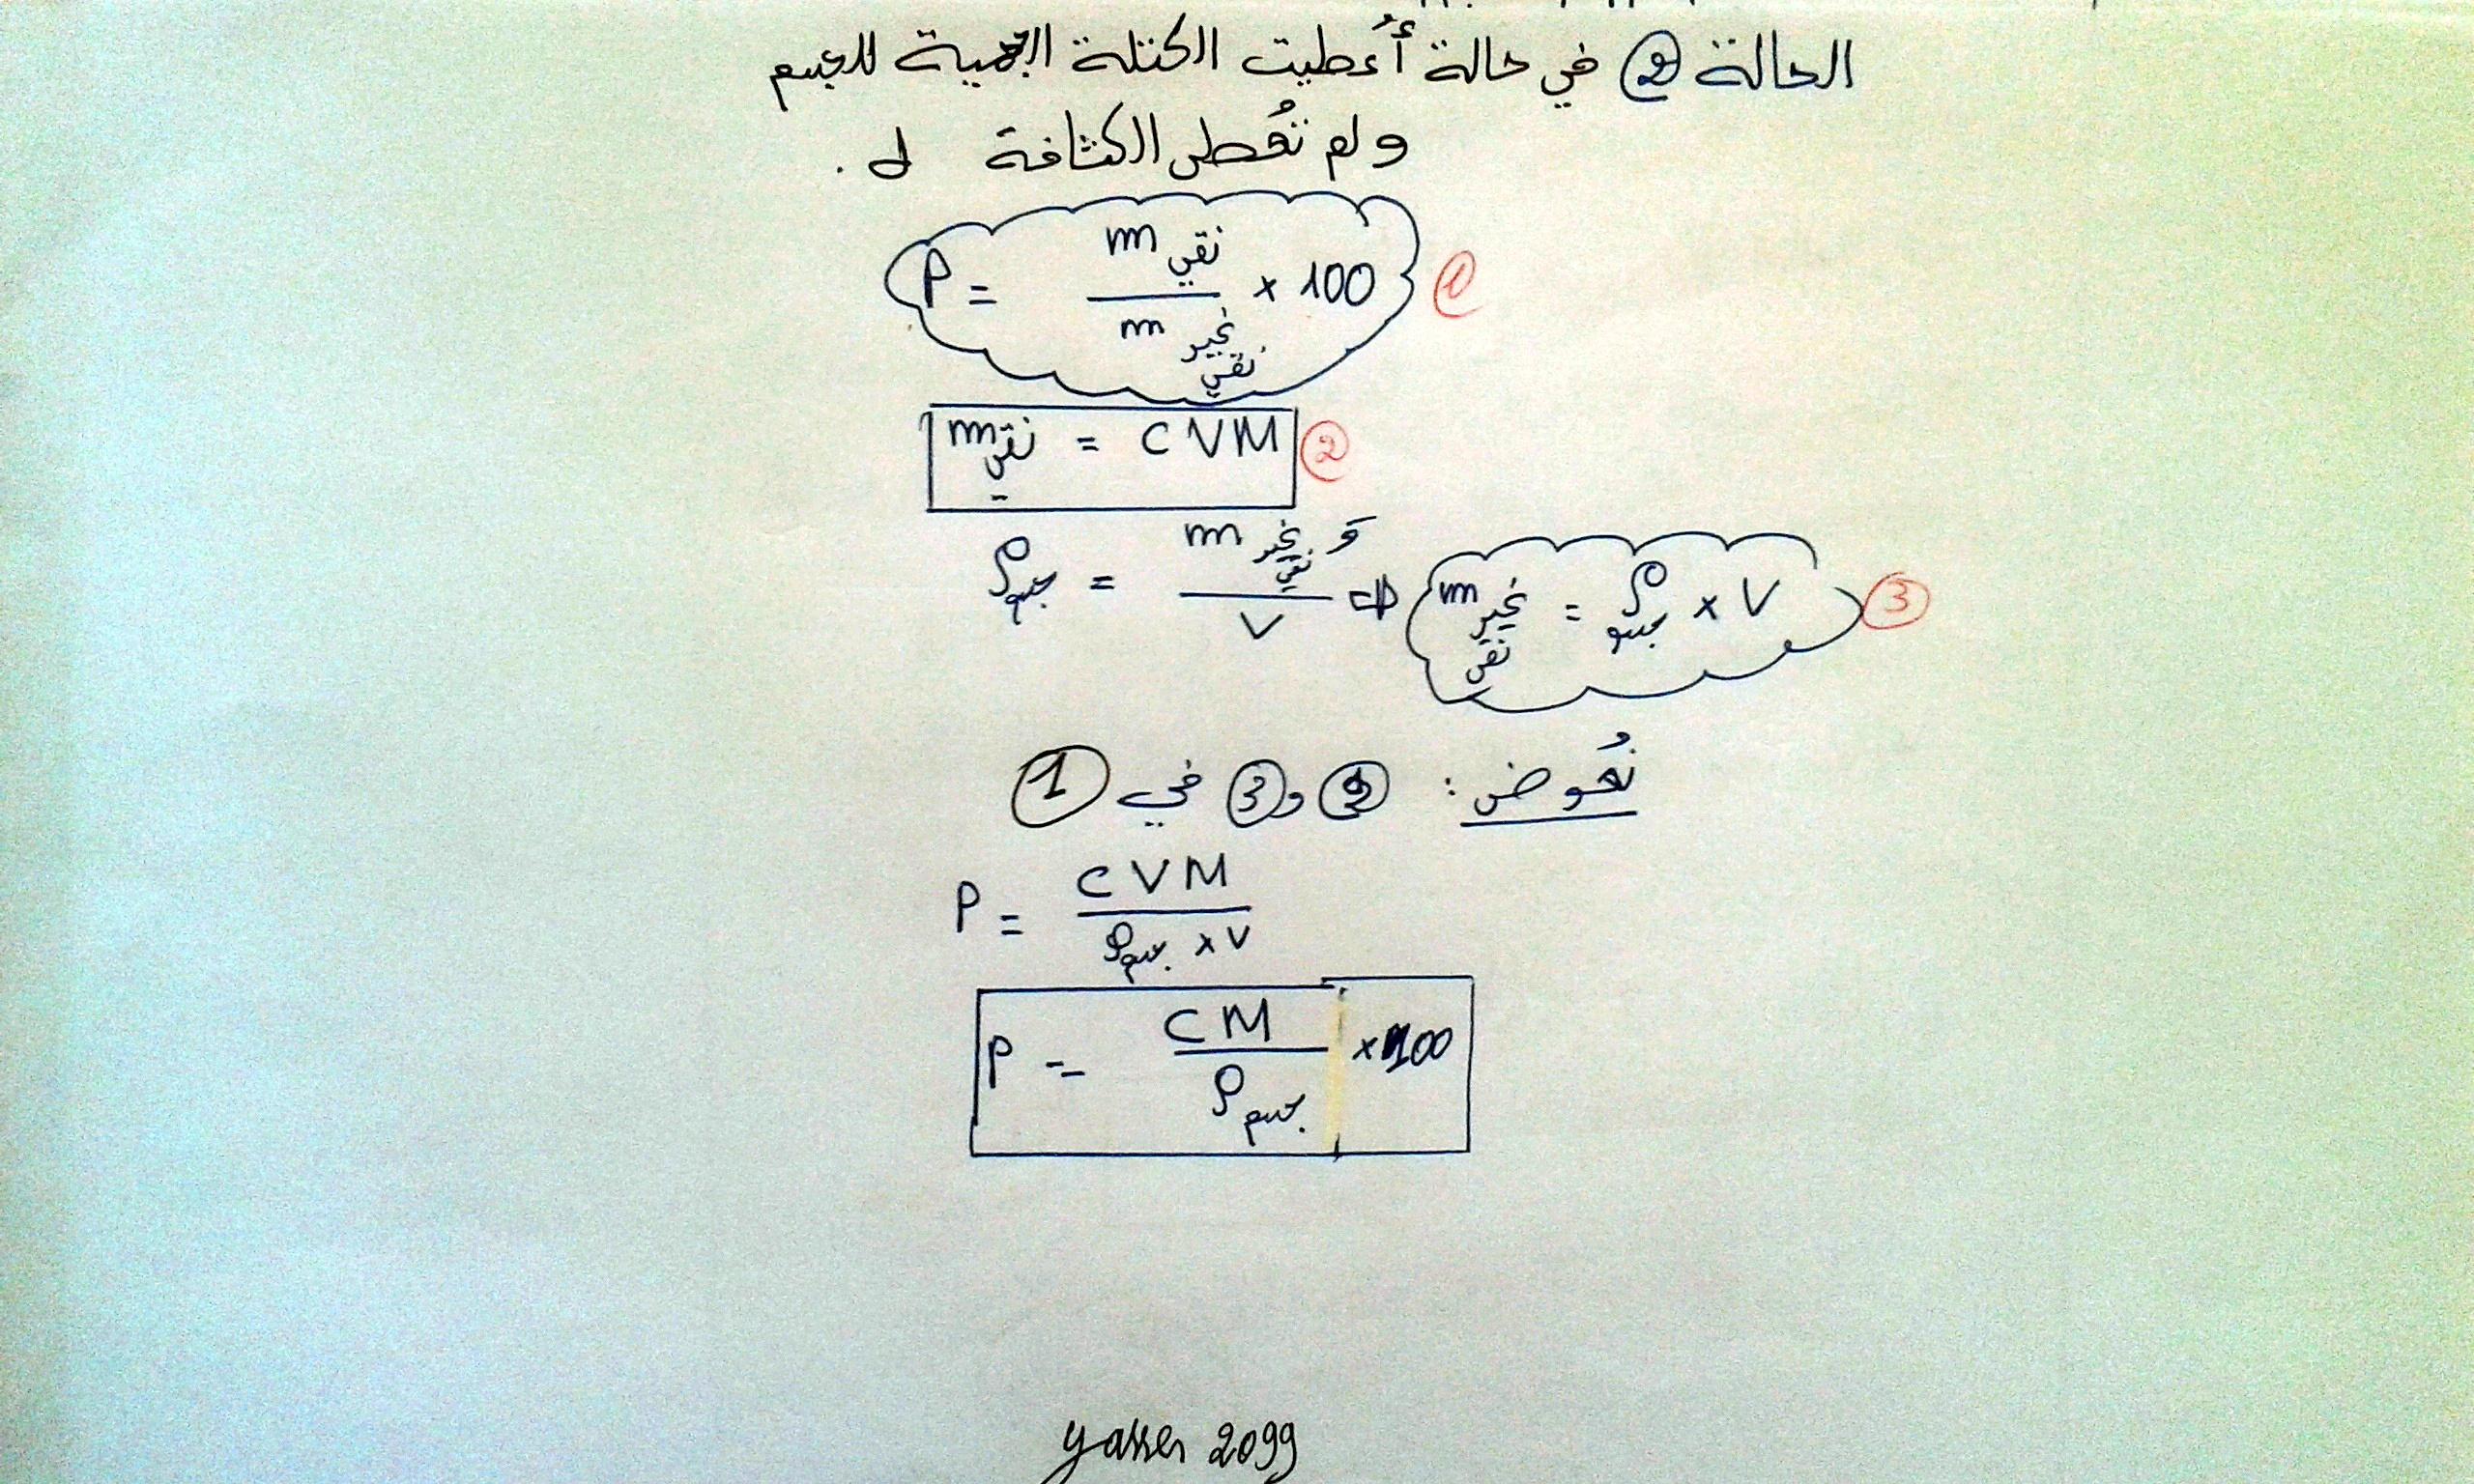 الحالة ② في حالة أُعطيت الكتلة الحجمية للجسم
ولم تُعطى الكثافة d .
P = m نقي / m غير نقي × 100 ①
m نقي = CVM ②
ρ جسم = m غير نقي / V ⇒ m غير نقي = ρ جسم × V ③ و
نُعوض : ② و ③ في ①
P = CVM / ρ جسم × V
P = CM / ρ جسم × 100
yasser 2099